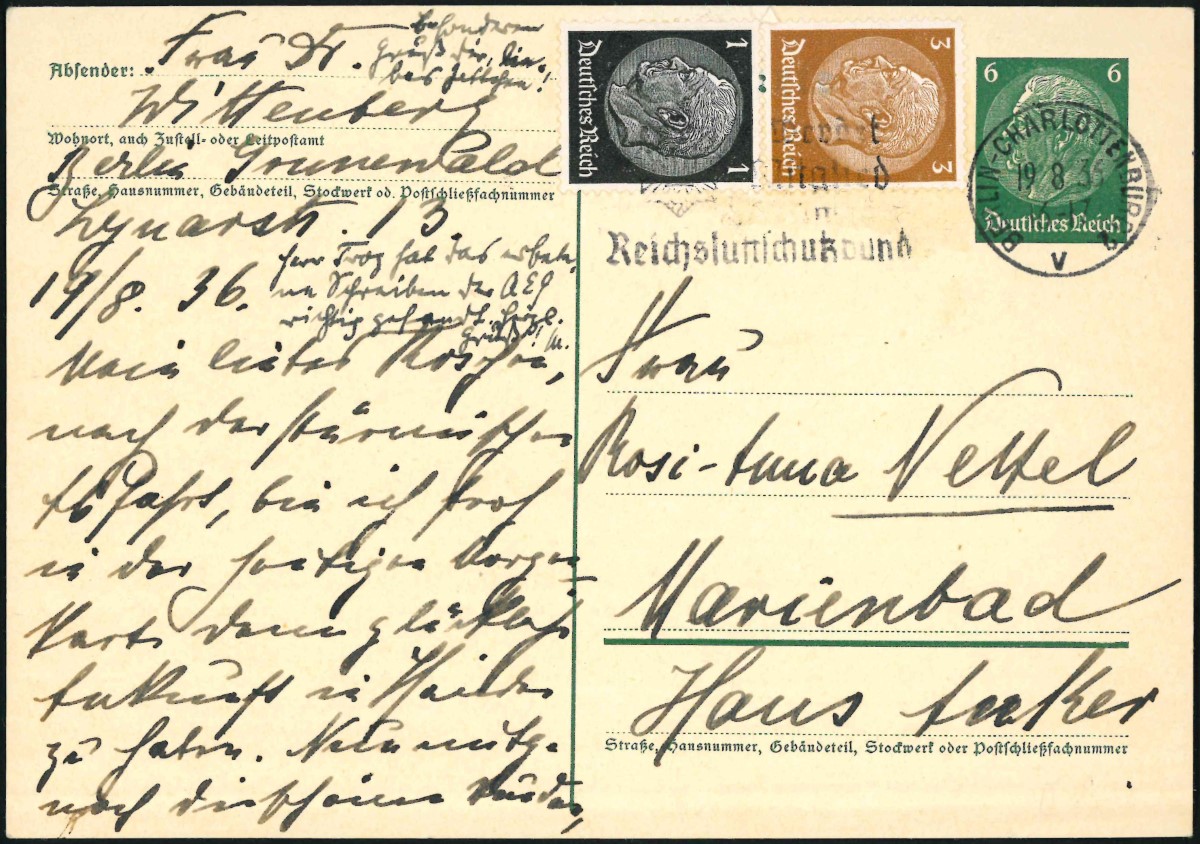 Absender: Frau Dr.
besonderen
Gruß dir, lie-
bes
Wittenberg
Wohnort, auch Zustell- oder Leitpostamt
Berlin Grunewald
Straße, Hausnummer, Gebäudeteil, Stockwerk od. Postschließfachnummer
Lynarstr. 13
19/8. 36.
Herr hat das erbete-
ne Schreiben der AEG
richtig gesandt. Herzl.
Gruß! M.
Mein liebes Röschen,
nach der stürmischen
Abfahrt, bin ich froh
in der heutigen Morgen-
karte deine glückliche
Ankunft in
zu haben. Nun
noch die schönen
1
Deutsches Reich
1
3
Deutsches Reich
3
6 6
Deutsches Reich
BERLIN-CHARLOTTENBURG 2
19.8.36
V
Werdet
Mitglied
im
Reichsluftschutzbund
Frau
Rosi-Anna Nettel
Marienbad
Haus Anker
Straße, Hausnummer, Gebäudeteil, Stockwerk oder Postschließfachnummer